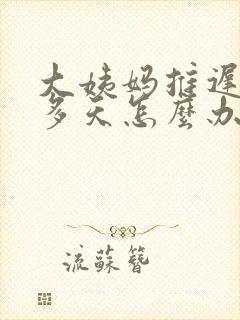 大姨妈推遲
多天怎麼办
流蘇簪